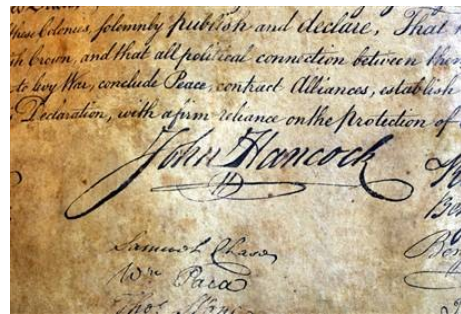 these Colonies, solemnly publish and declare, That
Crown, and that all political connection between
to levy War, conclude Peace, contract Alliances, establish
Declaration, with a firm reliance on the Protection of
John Hancock
Samuel Chase
Wm Paca
Thos